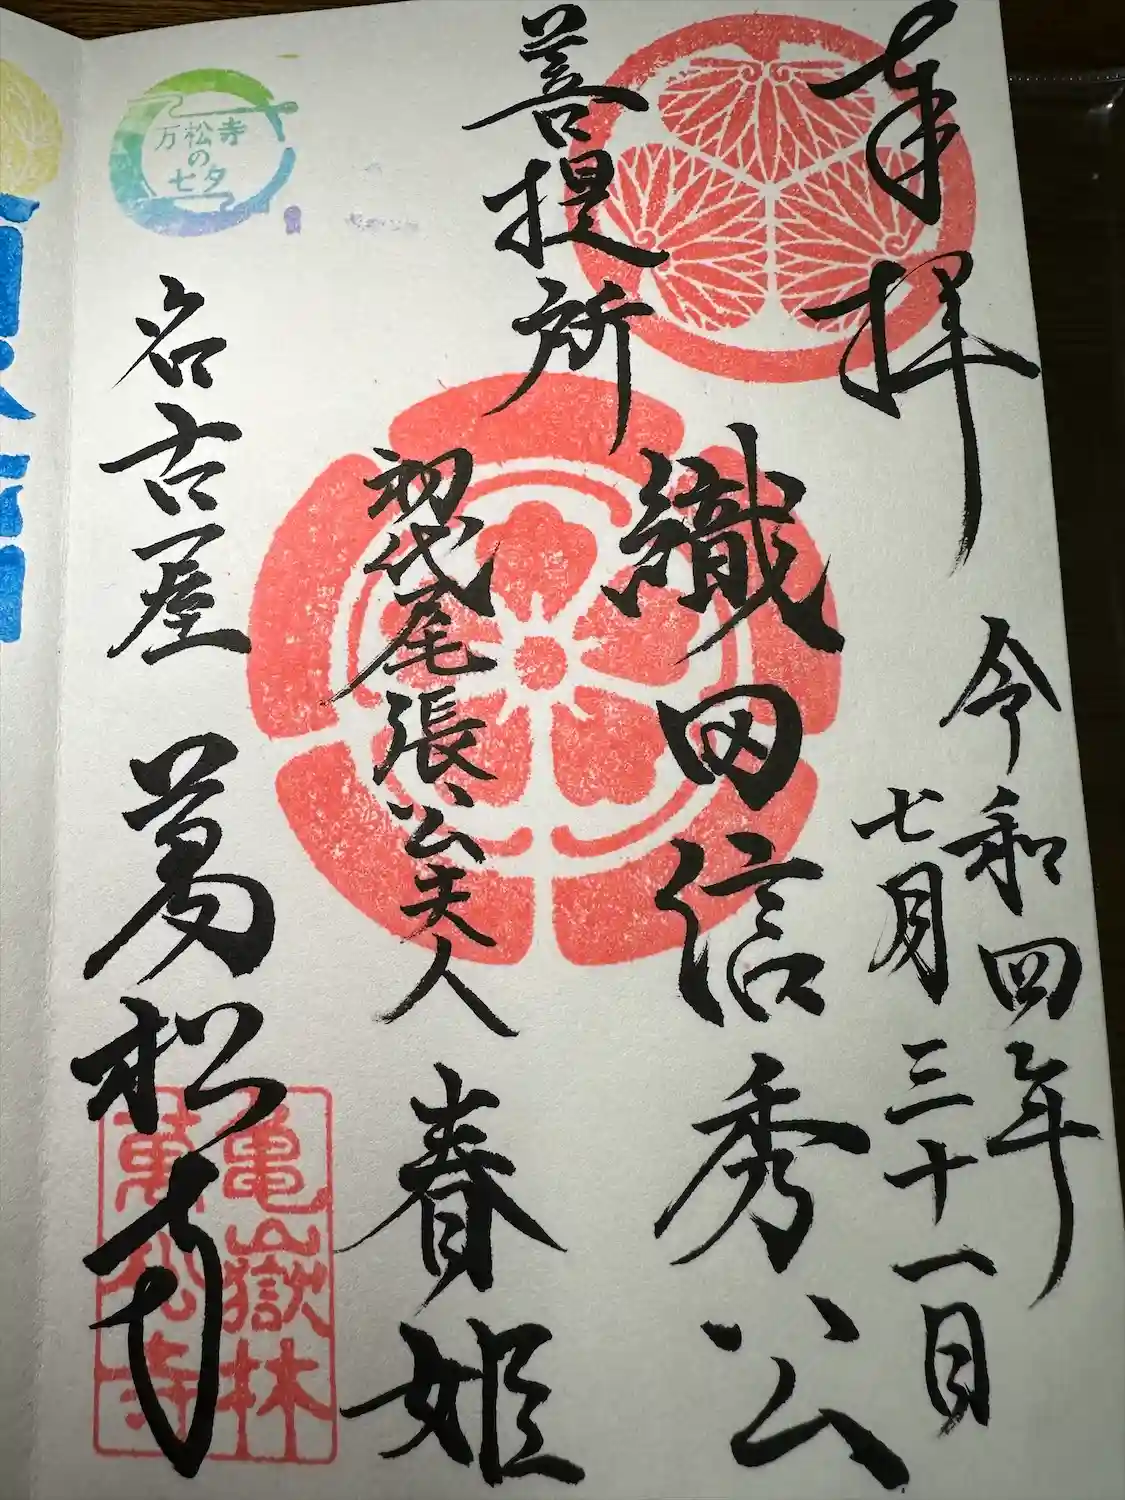 奉拝
令和四年
七月三十一日
菩提所
織田信秀公
初代尾張公夫人
春姫
万松寺
の
七夕
名古屋
萬松寺
亀山嶽林
萬松寺